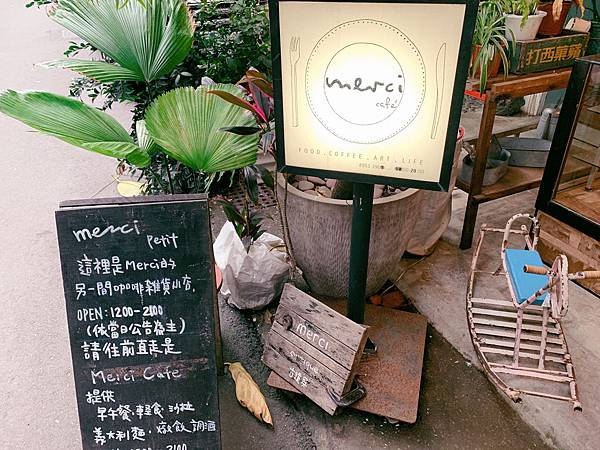 merci
café
FOOD.COFFEE.ART.LIFE
打西菓
merci
petit
這裡是Merci的
另一間咖啡雜貨小店.
OPEN:1200-2100
(依當日公告為主)
請往前直走是
Merci Cafe
提供
早午餐.輕食.沙拉
義大利麵.燉飯.調酒
merci